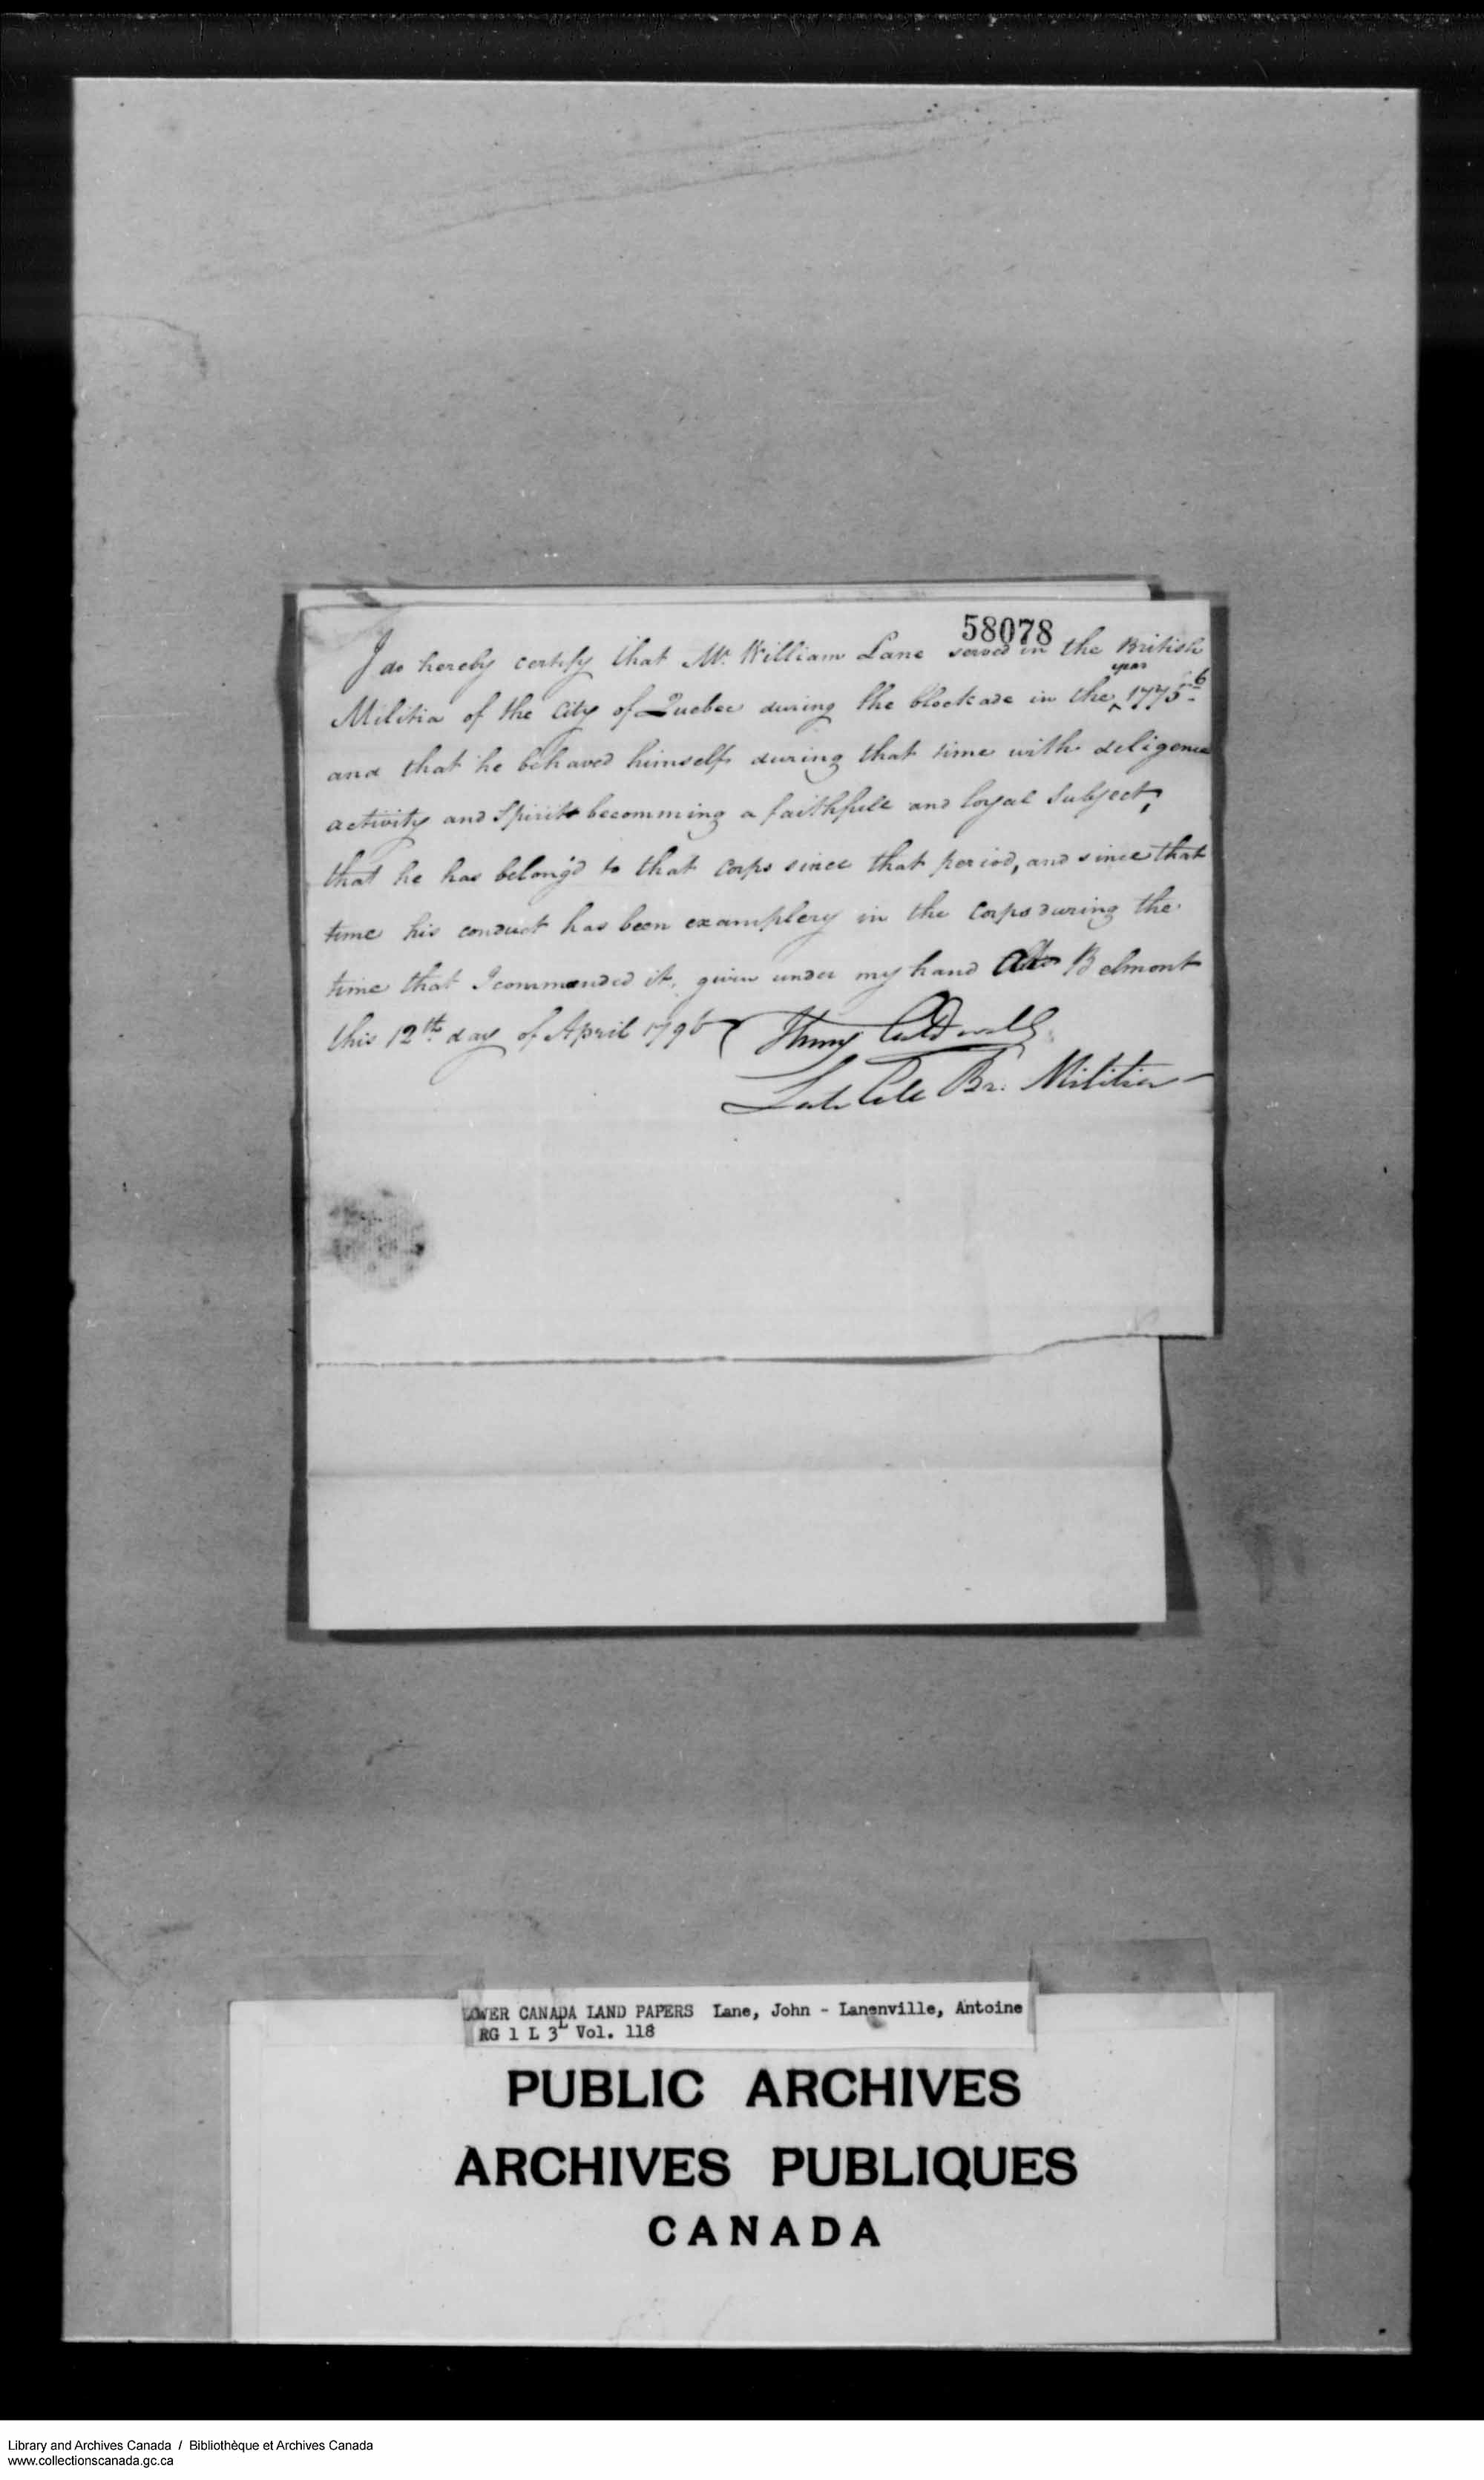 58078
I do hereby certify that Mr. William Lane served in the British
Militia of the City of Quebec during the blockade in the ^year 1775-6
and that he behaved himself during that time with deligence
activity and Spirit becomming a faithfull and loyal Subject,
that he has belong'd to that Corps since that period, and since that
time his conduct has been examplery in the Corps during the
time that I commanded it, given under my hand Att Belmont
this 12th day of April 1796
Henry Caldwell
Late Coll Br. Militia
LOWER CANADA LAND PAPERS Lane, John - Lanenville, Antoine
RG 1 L 3L Vol. 118
PUBLIC ARCHIVES
ARCHIVES PUBLIQUES
CANADA
Library and Archives Canada / Bibliothèque et Archives Canada
www.collectionscanada.gc.ca